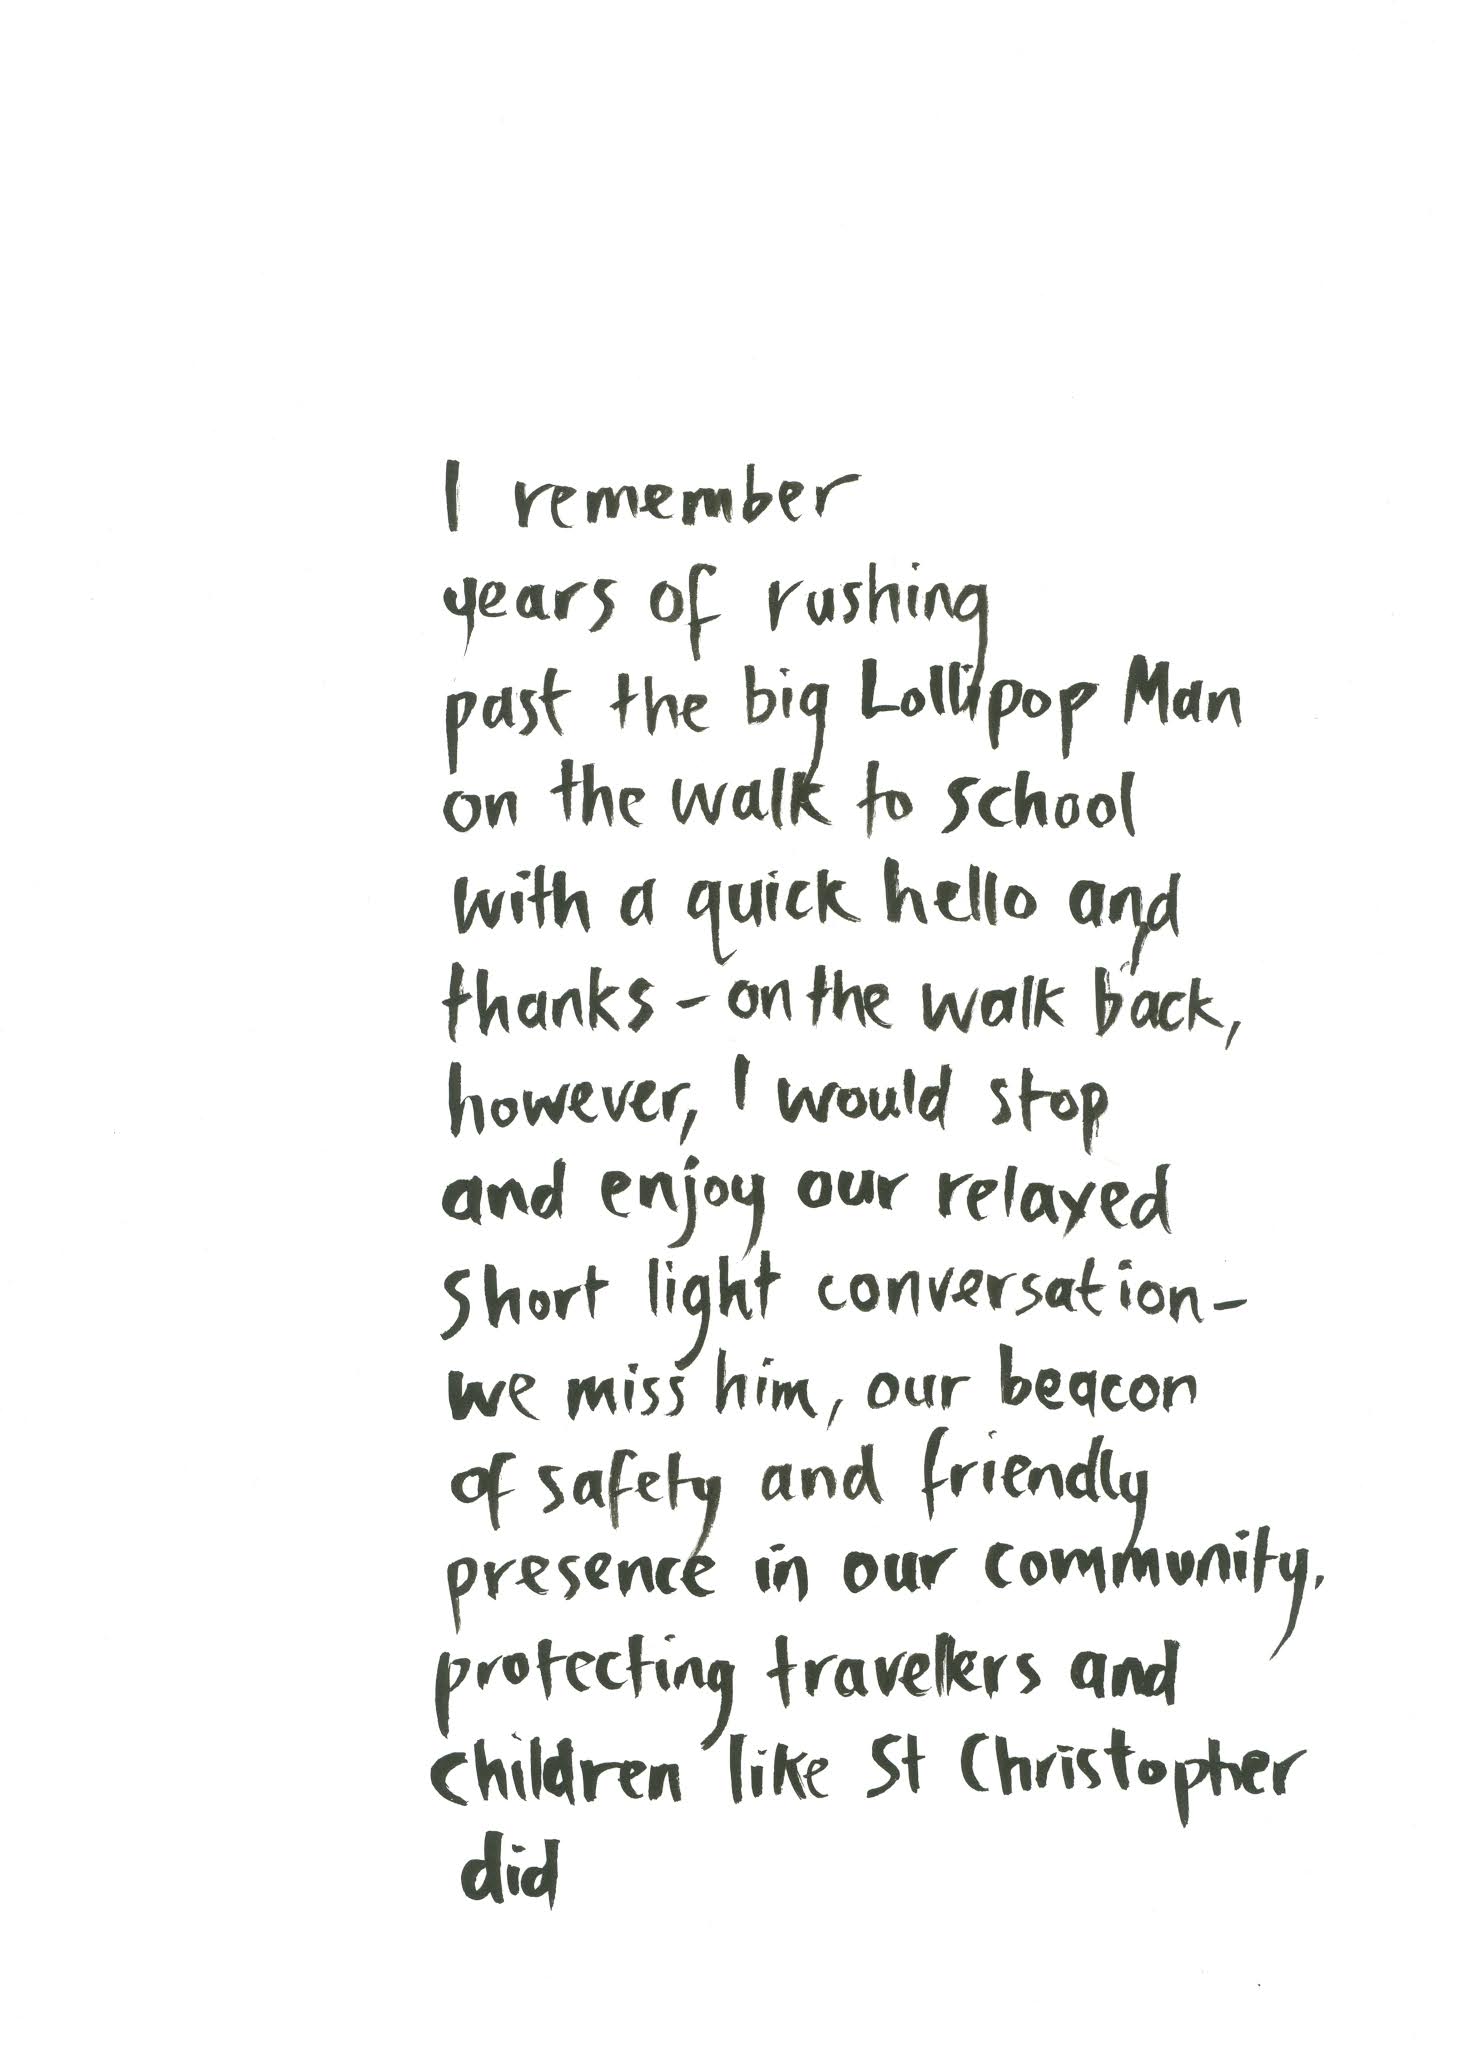 I remember
years of rushing
past the big Lollipop Man
on the walk to school
with a quick hello and
thanks - on the walk back,
however, I would stop
and enjoy our relaxed
short light conversation -
we miss him, our beacon
of safety and friendly
presence in our community.
protecting travellers and
children like St Christopher
did